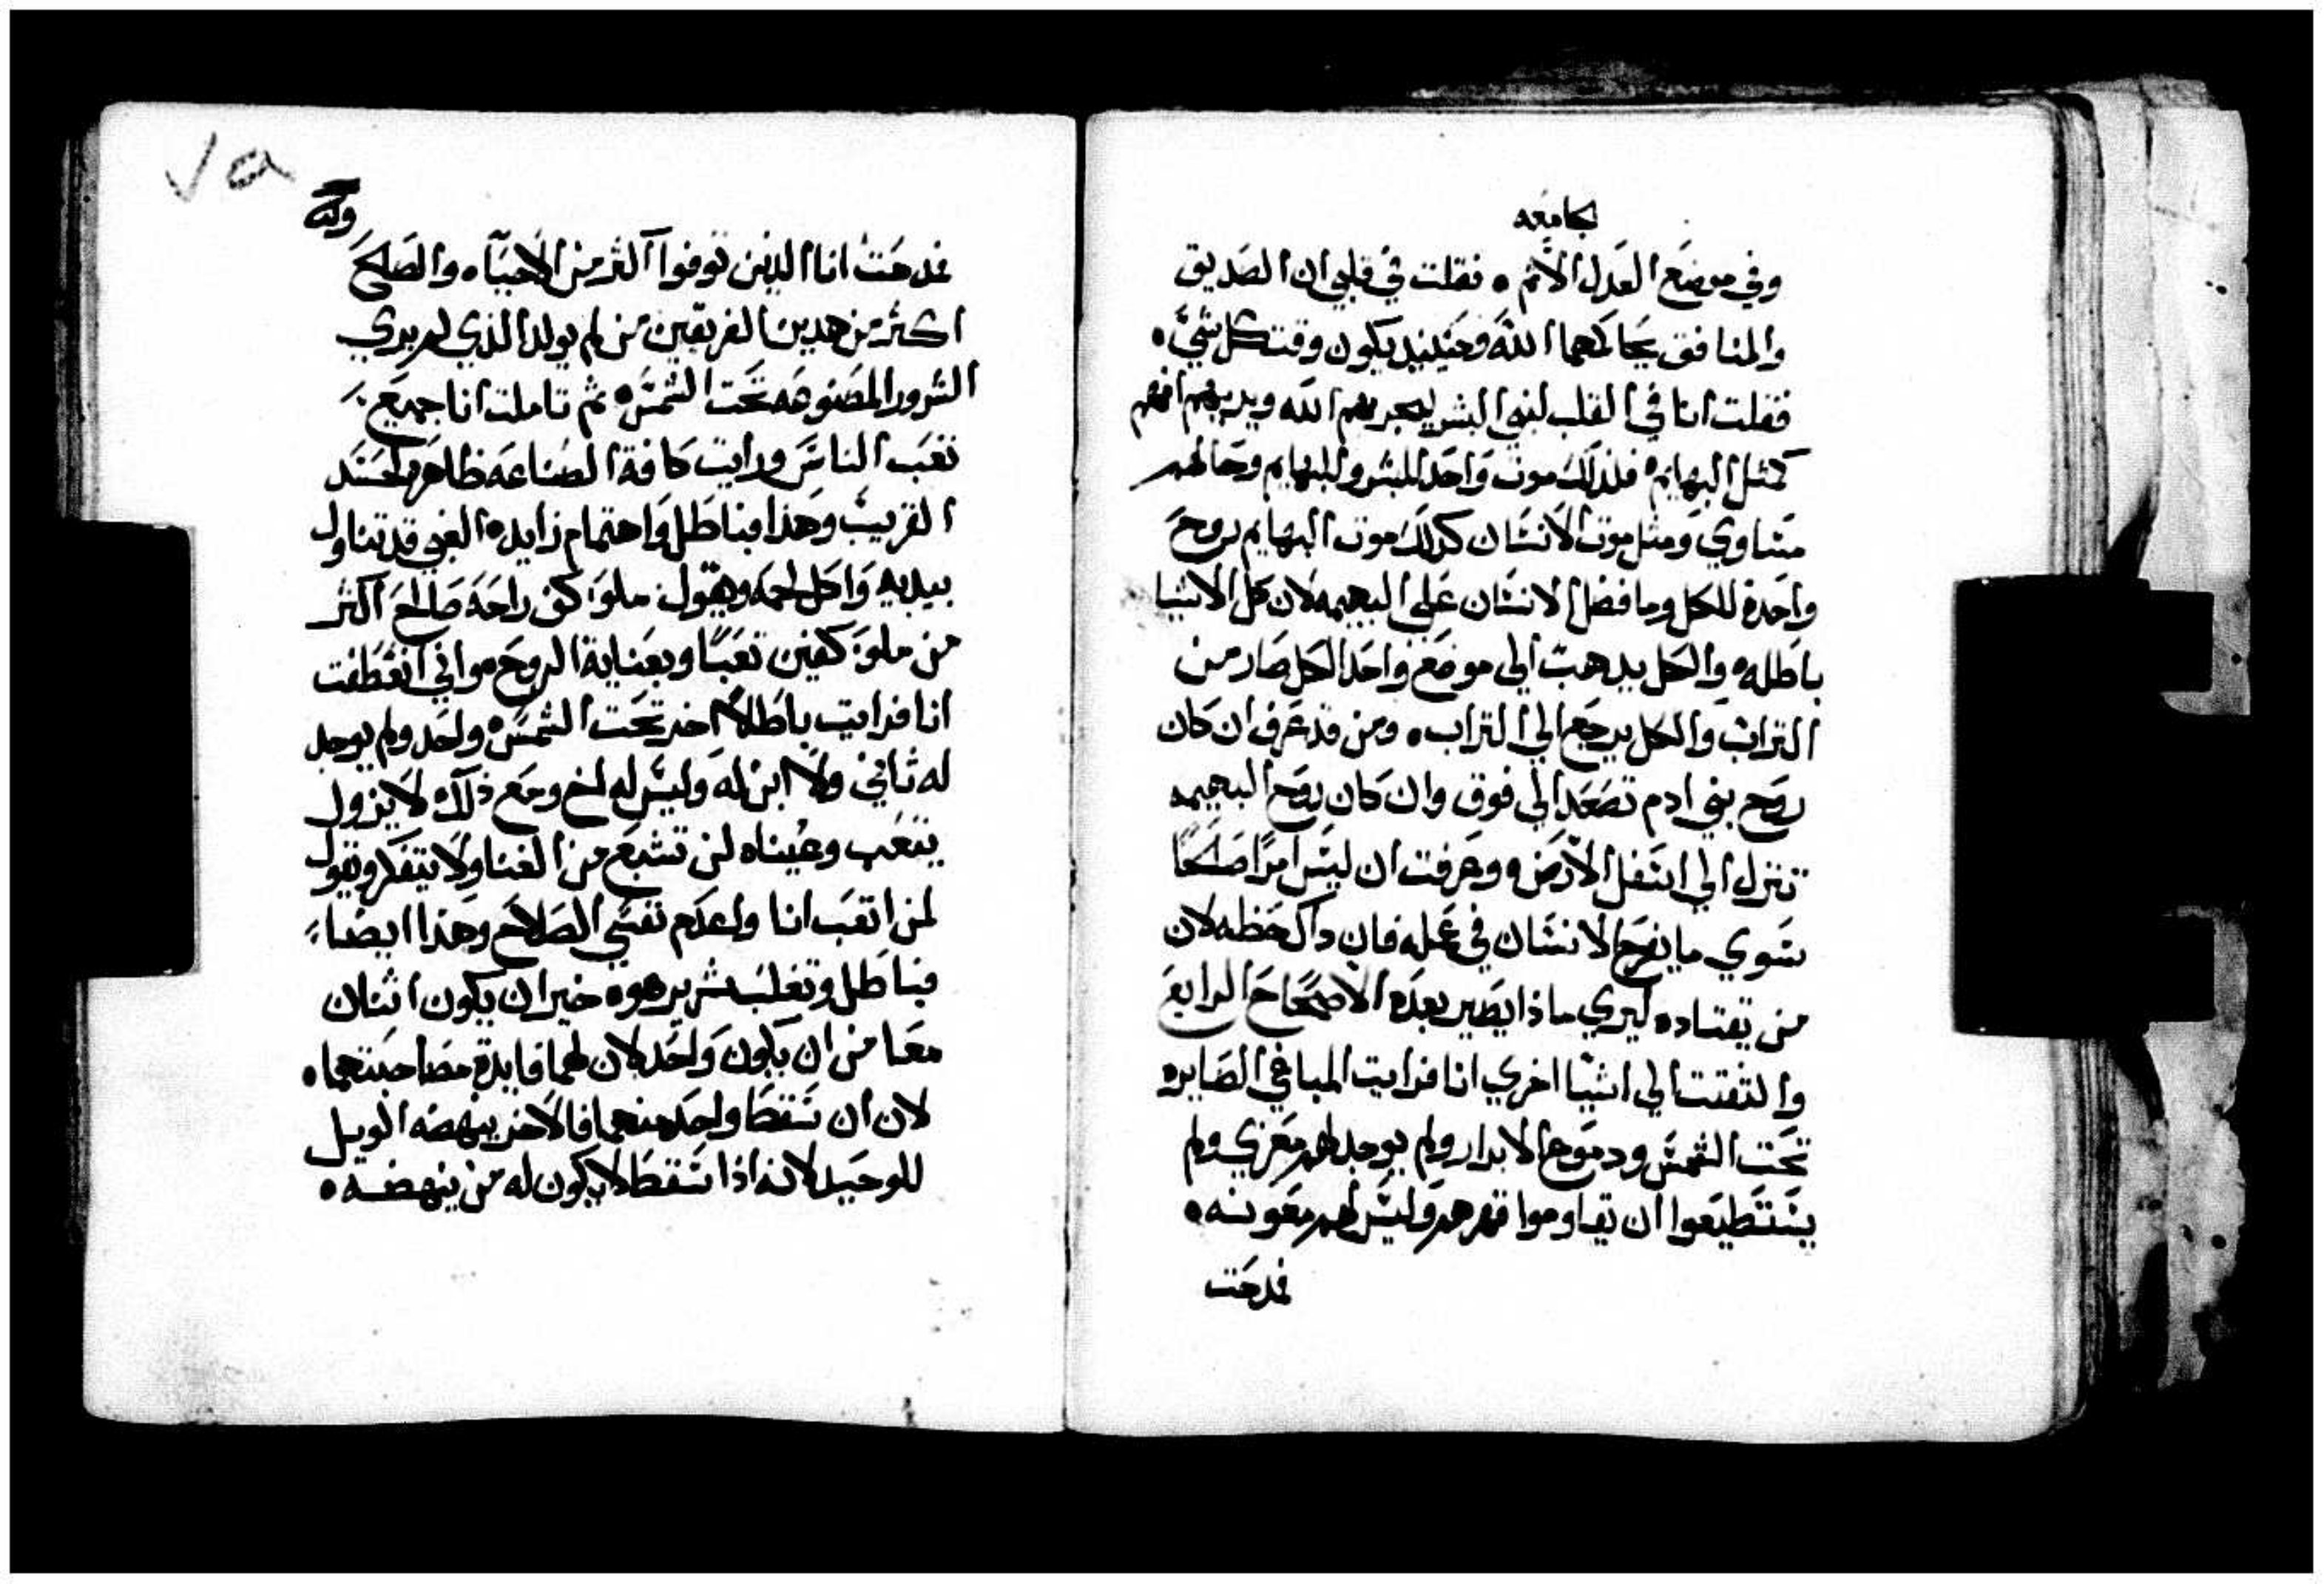 جامعه
وفي موضع العدل الاثم ٥ فقلت في قلبي ان الصديق
والمنافق يحاكمهما الله وحينيد يكون وقت كل شيء ٥
فقلت انا في القلب لبني البشر ليجربهم الله ويريهم انهم
كمثل البهايم ٥ فلذلك موت واحد للبشر وللبهايم وحالهم
متساوي ومثل موت الانسان كذلك موت البهايم روح
واحدة للكل وما فضل الانسان على البهيمه لان كل الاشيا
باطله ٥ والكل يدهب الي موضع واحد الكل صار من
التراب والكل يرجع الي التراب ٥ ومن قد عرف ان كان
روح بني ادم تصعد الي فوق وان كان روح البهيمه
تنزل الي اسفل الارض ٥ وعرفت ان ليس امرًا صلحًا
سوي ما يفرح الانسان في عمله فان داك حظه لان
من يقتاده ليري ماذا يصير بعده الاصحاح الرابع
والتفتت الي اشيا اخري انا فرايت المباغي الصايره
تحت الشمس ودموع الابرار ولم يوجد لهم معزي ولم
يستطيعوا ان يقاوموا قهرهم وليس لهم معونه ٥
فمدحت
٧٥
فمدحت انا الدين توفوا اكثر من الاحياء ٥ والصلح
اكثر من هدين الفريقين من لم يولد الذي لم يري
الشرور المصنوعه تحت الشمس ٥ ثم تاملت انا جميع
تعب الناس ورايت كافة الصناعه ظاهره لحسد
القريب وهذا فباطل واهتمام زايد ٥ الغبي قد تناول
بيديه واكل لحمه ويقول ملوَ كف راحة صالح اكثر
من ملوَ كفين تعبًا وبعناية الروح ٥ واني انعطفت
انا فرايت باطلاً اخر تحت الشمس ٥ واحد ولم يوجد
له ثاني ولا ابن له وليس له اخ ومع ذلك لا يزول
يتعب وعيناه لن تشبع من الغنا ولا يتفكر ويقول
لمن اتعب انا واعدم نفسي الصلاح وهذا ايضا
فباطل وتغلب شرير هو ٥ خير ان يكون اثنان
معا من ان يكون واحد لان لهما فايدة مصاحبتهما ٥
لان ان سقط واحد منهما فالاخر ينهضه الويل
للوحيد لانه اذا سقط لا يكون له من ينهضه ٥